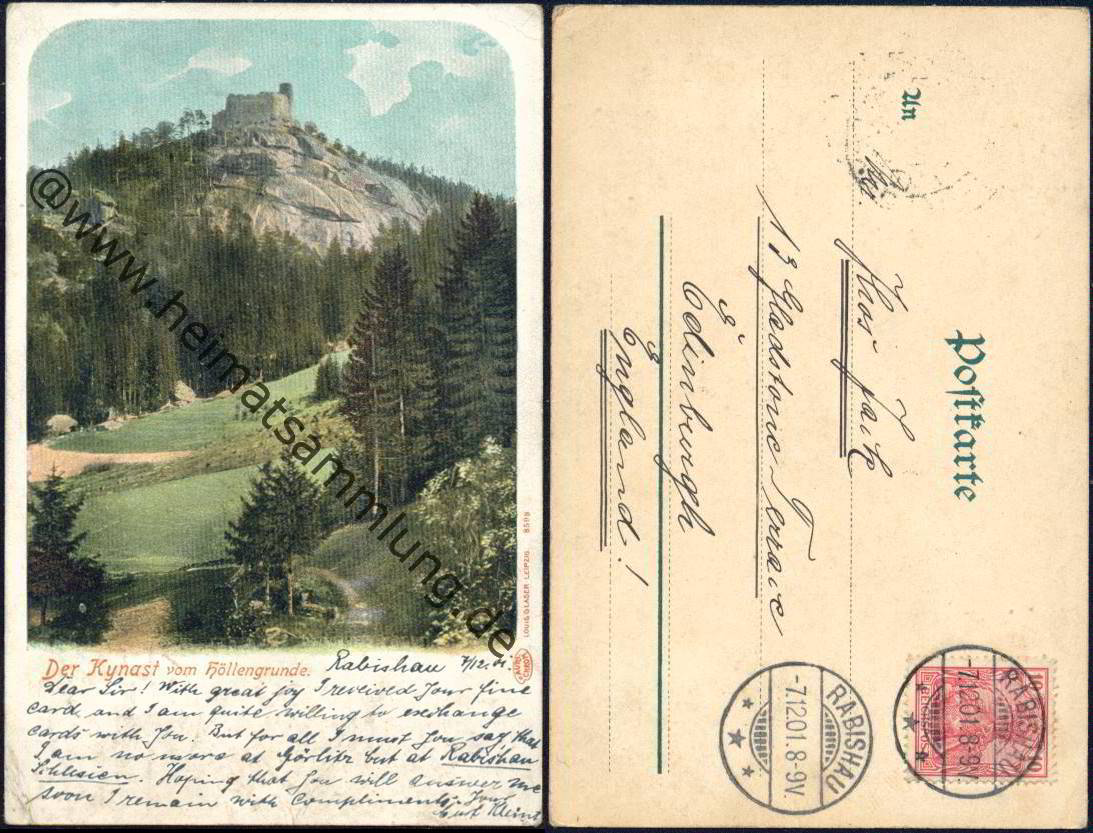 @www.heimatsammlung.de
LOUIS GLASER LEIPZIG 8599
Der Kynast vom Höllengrunde.
Rabishau 7/12.01.
Dear Sir! With great joy I received Your fine
card and I am quite willing to exchange
cards with You. But for all I must You say that
I am no more at Görlitz but at Rabishau
Schlesien. Hoping that you will answer me
soon I remain with compliments Your
Postkarte
An
13 Gladstone Terrace
Edinburgh
England!
RABISHAU
-7.12.01.8-9V.
RABISHAU
-7.12.01.8-9V.
10